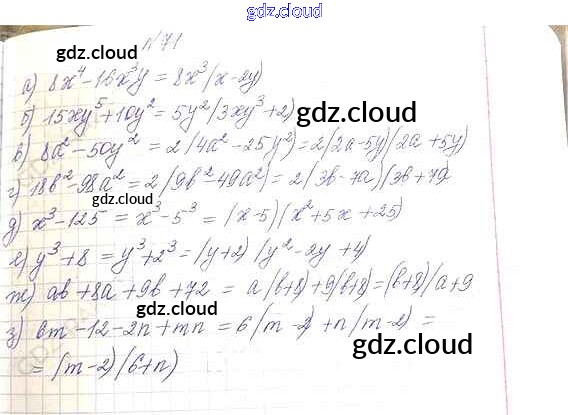 gdz.cloud
gdz.cloud №71
а) 8x⁴-16x³y = 8x³(x-2y)
б) 15xy⁵+10y² = 5y²(3xy³+2)
gdz.cloud
в) 8a²-50y² = 2(4a²-25y²) = 2(2a-5y)(2a+5y)
г) 18b²-98a² = 2(9b²-49a²) = 2(3b-7a)(3b+7a
д) x³-125 = x³-5³ = (x-5)(x²+5x+25)
gdz.cloud
е) y³+8 = y³+2³ = (y+2)(y²-2y+4)
ж) ab+8a+9b+72 = a(b+8)+9(b+8)=(b+8)(a+9
gdz.cloud
з) 6m-12-2n+mn = 6(m-2)+n(m-2) =
gdz.cloud
= (m-2)(6+n)